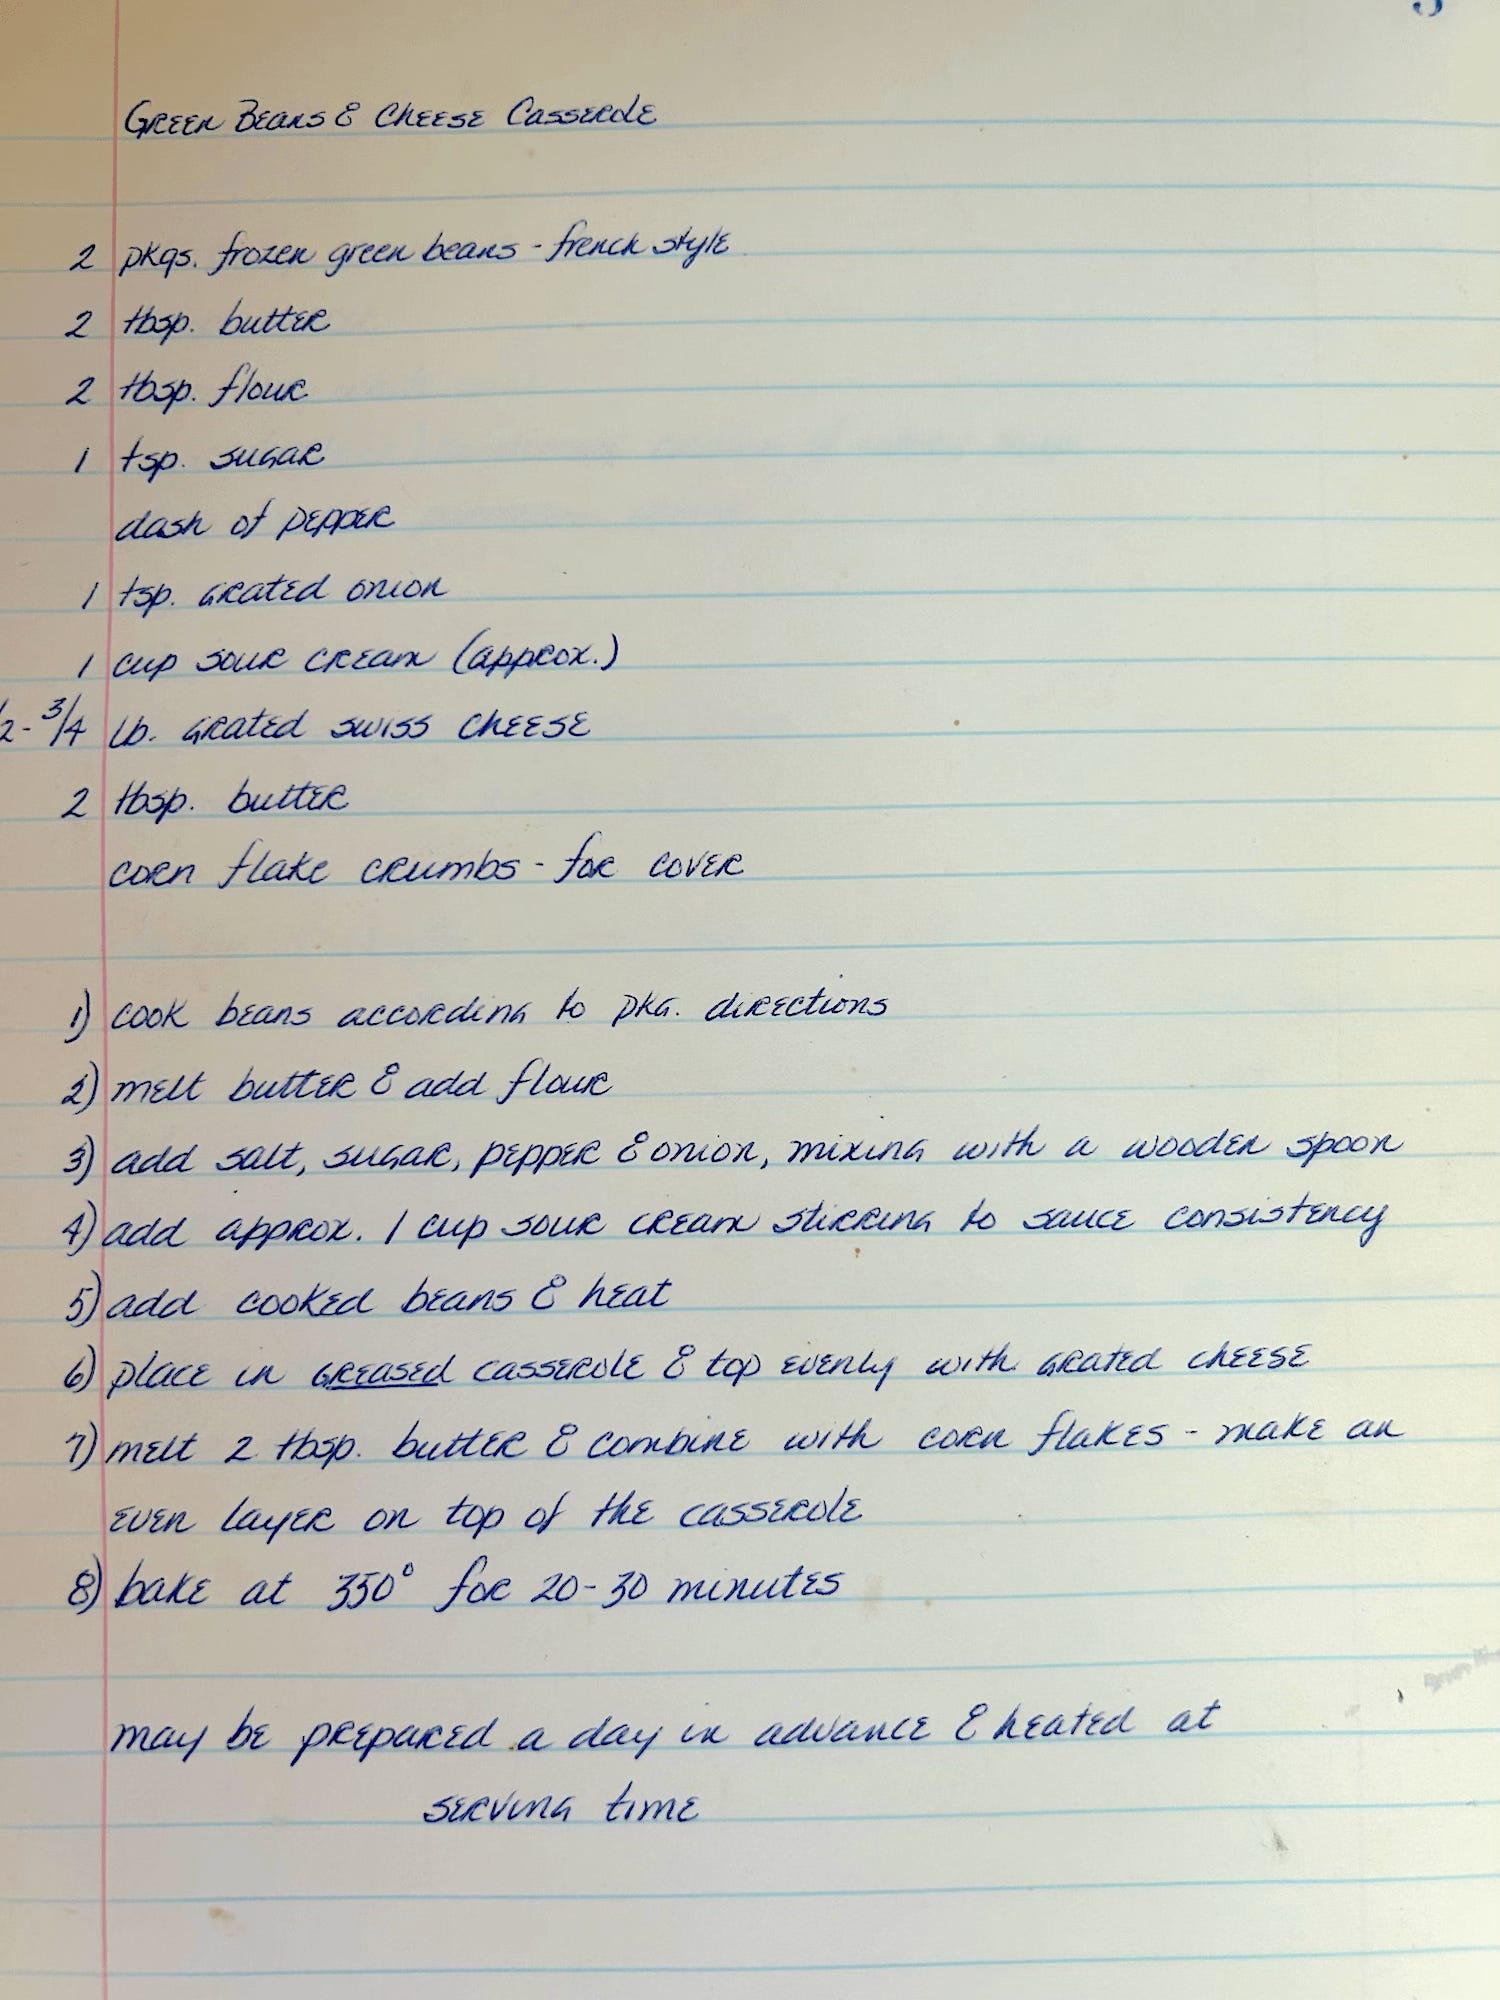 Green Beans & Cheese Casserole
2 pkgs. frozen green beans - french style
2 tbsp. butter
2 tbsp. flour
1 tsp. sugar
dash of pepper
1 tsp. grated onion
1 cup sour cream (approx.)
/2 - 3/4 lb. grated swiss cheese
2 tbsp. butter
corn flake crumbs - for cover
1) cook beans according to pkg. directions
2) melt butter & add flour
3) add salt, sugar, pepper & onion, mixing with a wooden spoon
4) add approx. 1 cup sour cream stirring to sauce consistency
5) add cooked beans & heat
6) place in greased casserole & top evenly with grated cheese
7) melt 2 tbsp. butter & combine with corn flakes - make an
even layer on top of the casserole
8) bake at 350° for 20-30 minutes
may be prepared a day in advance & heated at
serving time